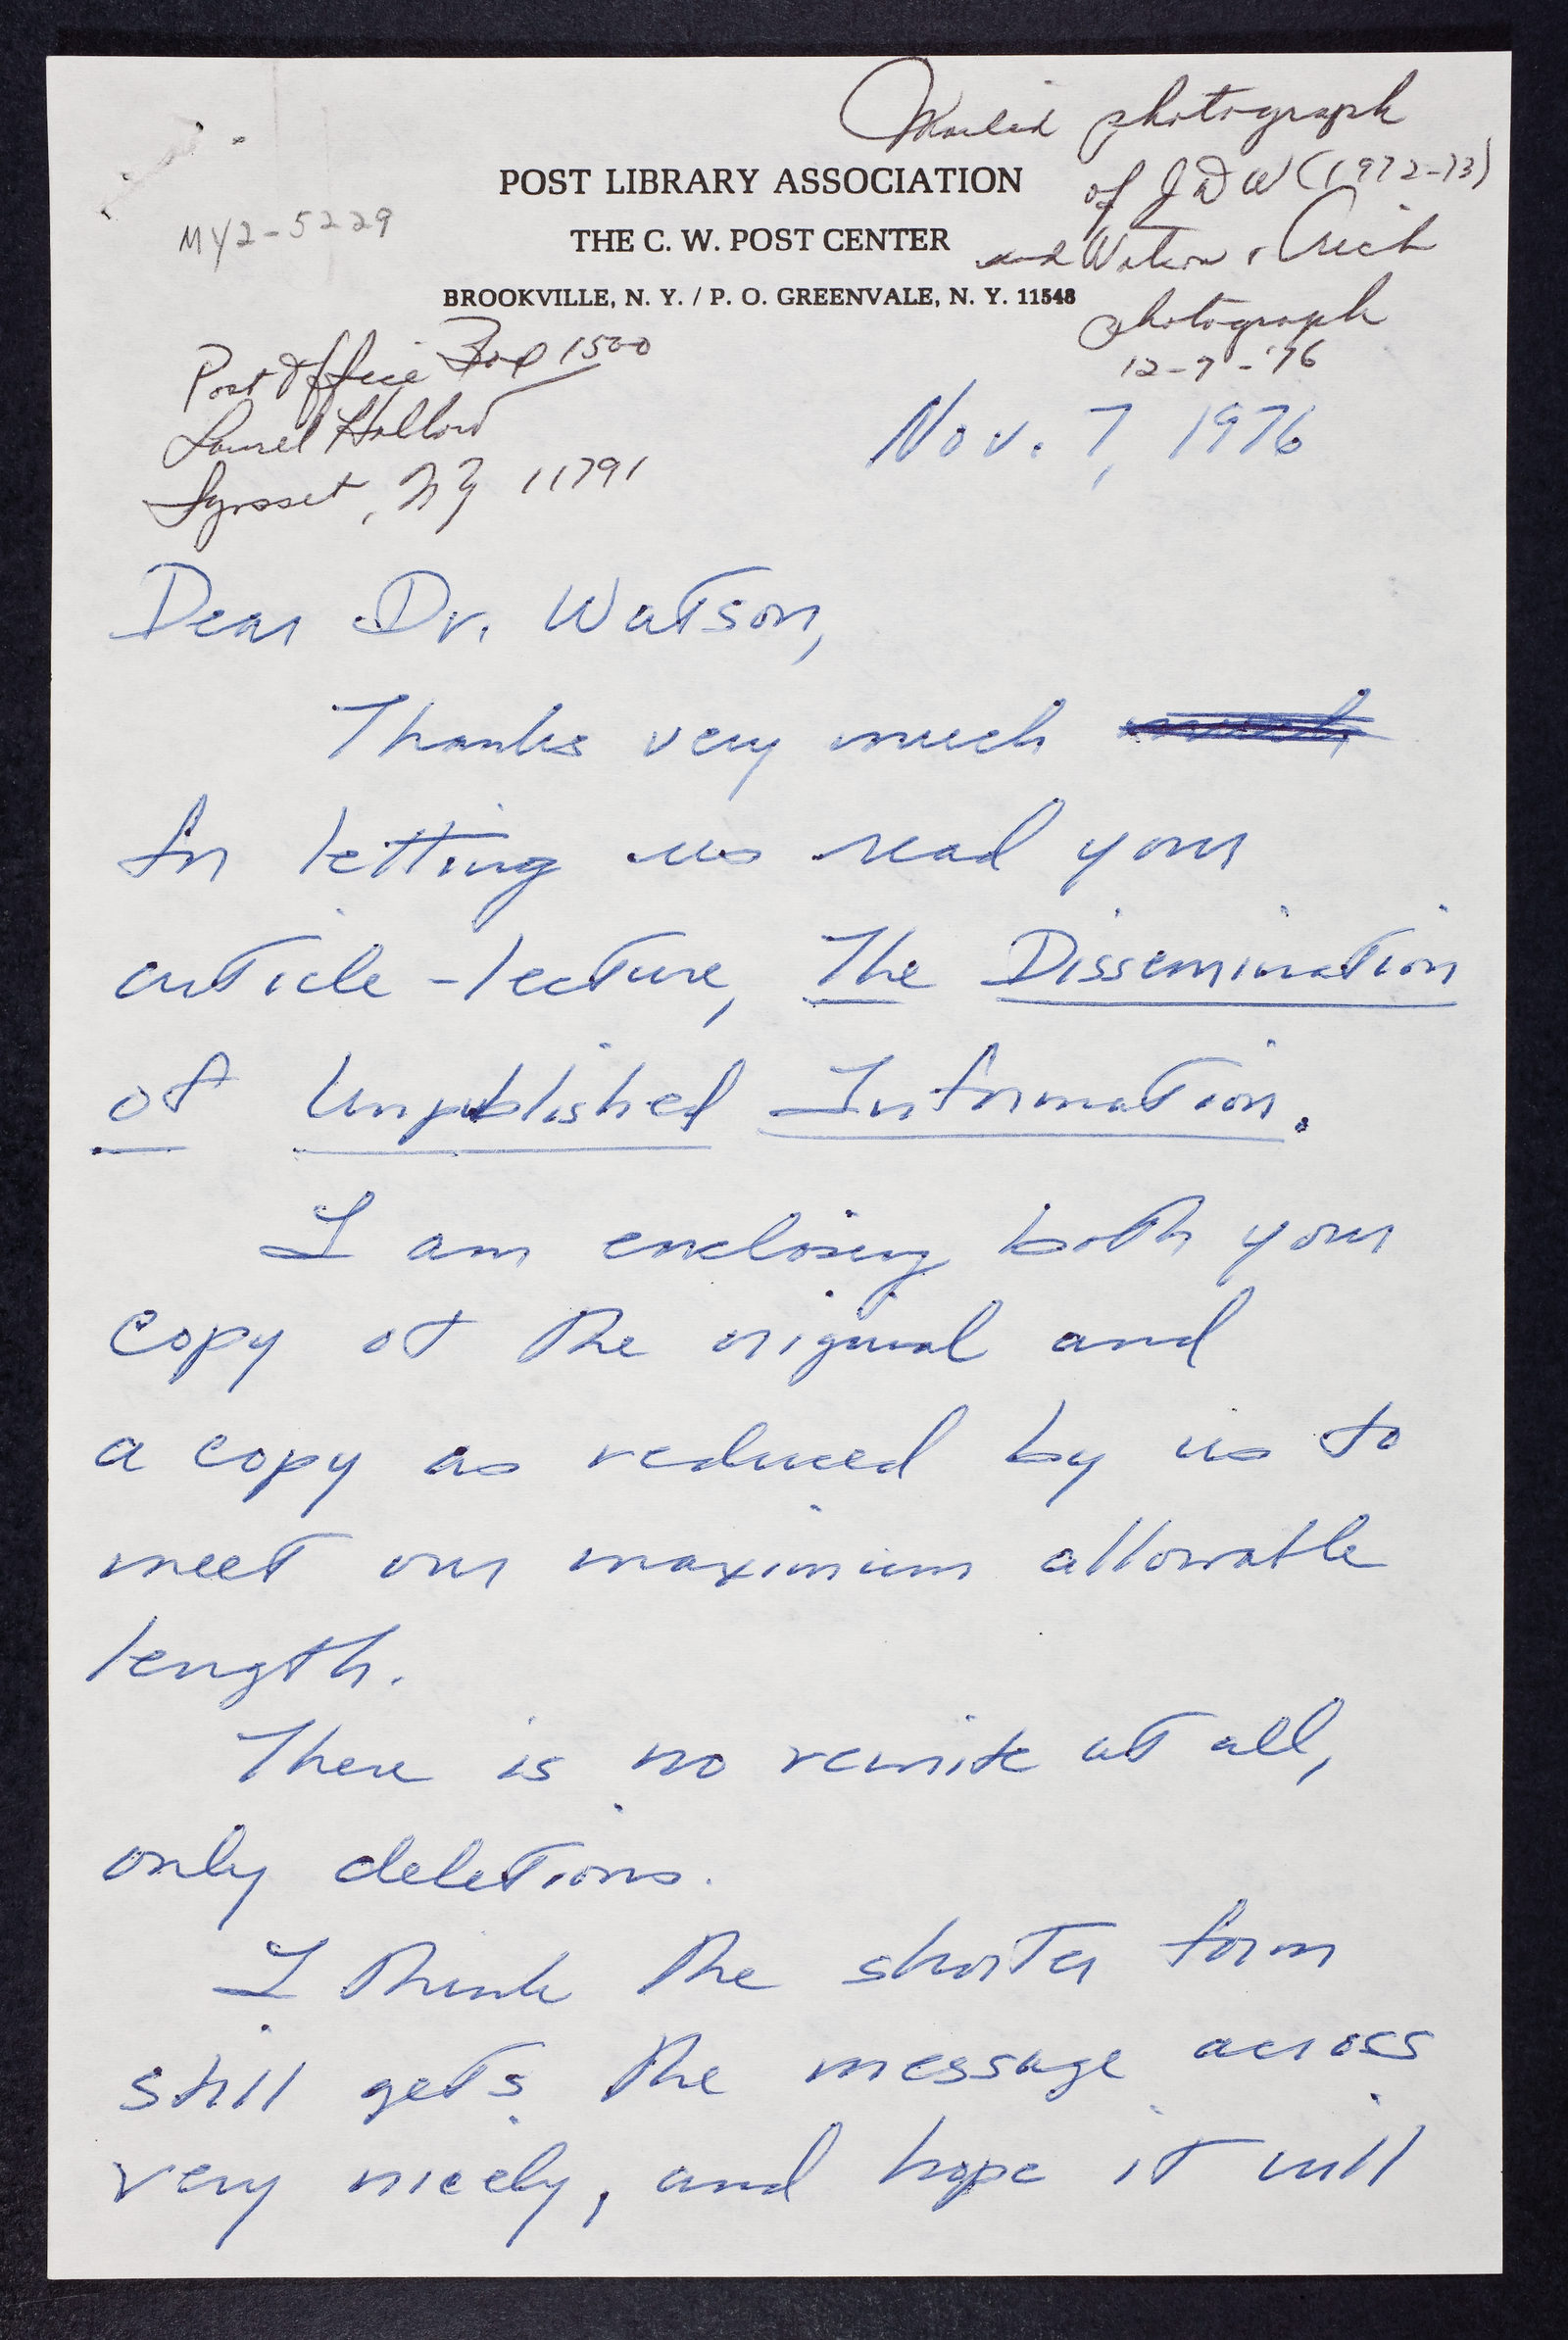 Mailed photograph
of JDW (1972-73)
and Watson & Crick
photograph
12-7-'76
MY2-5229
POST LIBRARY ASSOCIATION
THE C. W. POST CENTER
BROOKVILLE, N. Y. / P. O. GREENVALE, N. Y. 11548
Post Office Box 1500
Laurel Hollow
Syosset, NY 11791
Nov. 7, 1976
Dear Dr. Watson,
Thanks very much
for letting us read your
article-lecture, The Dissemination
of Unpublished Information.
I am enclosing both your
copy of the original and
a copy as reduced by us to
meet our maximum allowable
length.
There is no rewrite at all,
only deletions.
I think the shorter form
still gets the message across
very nicely, and hope it will